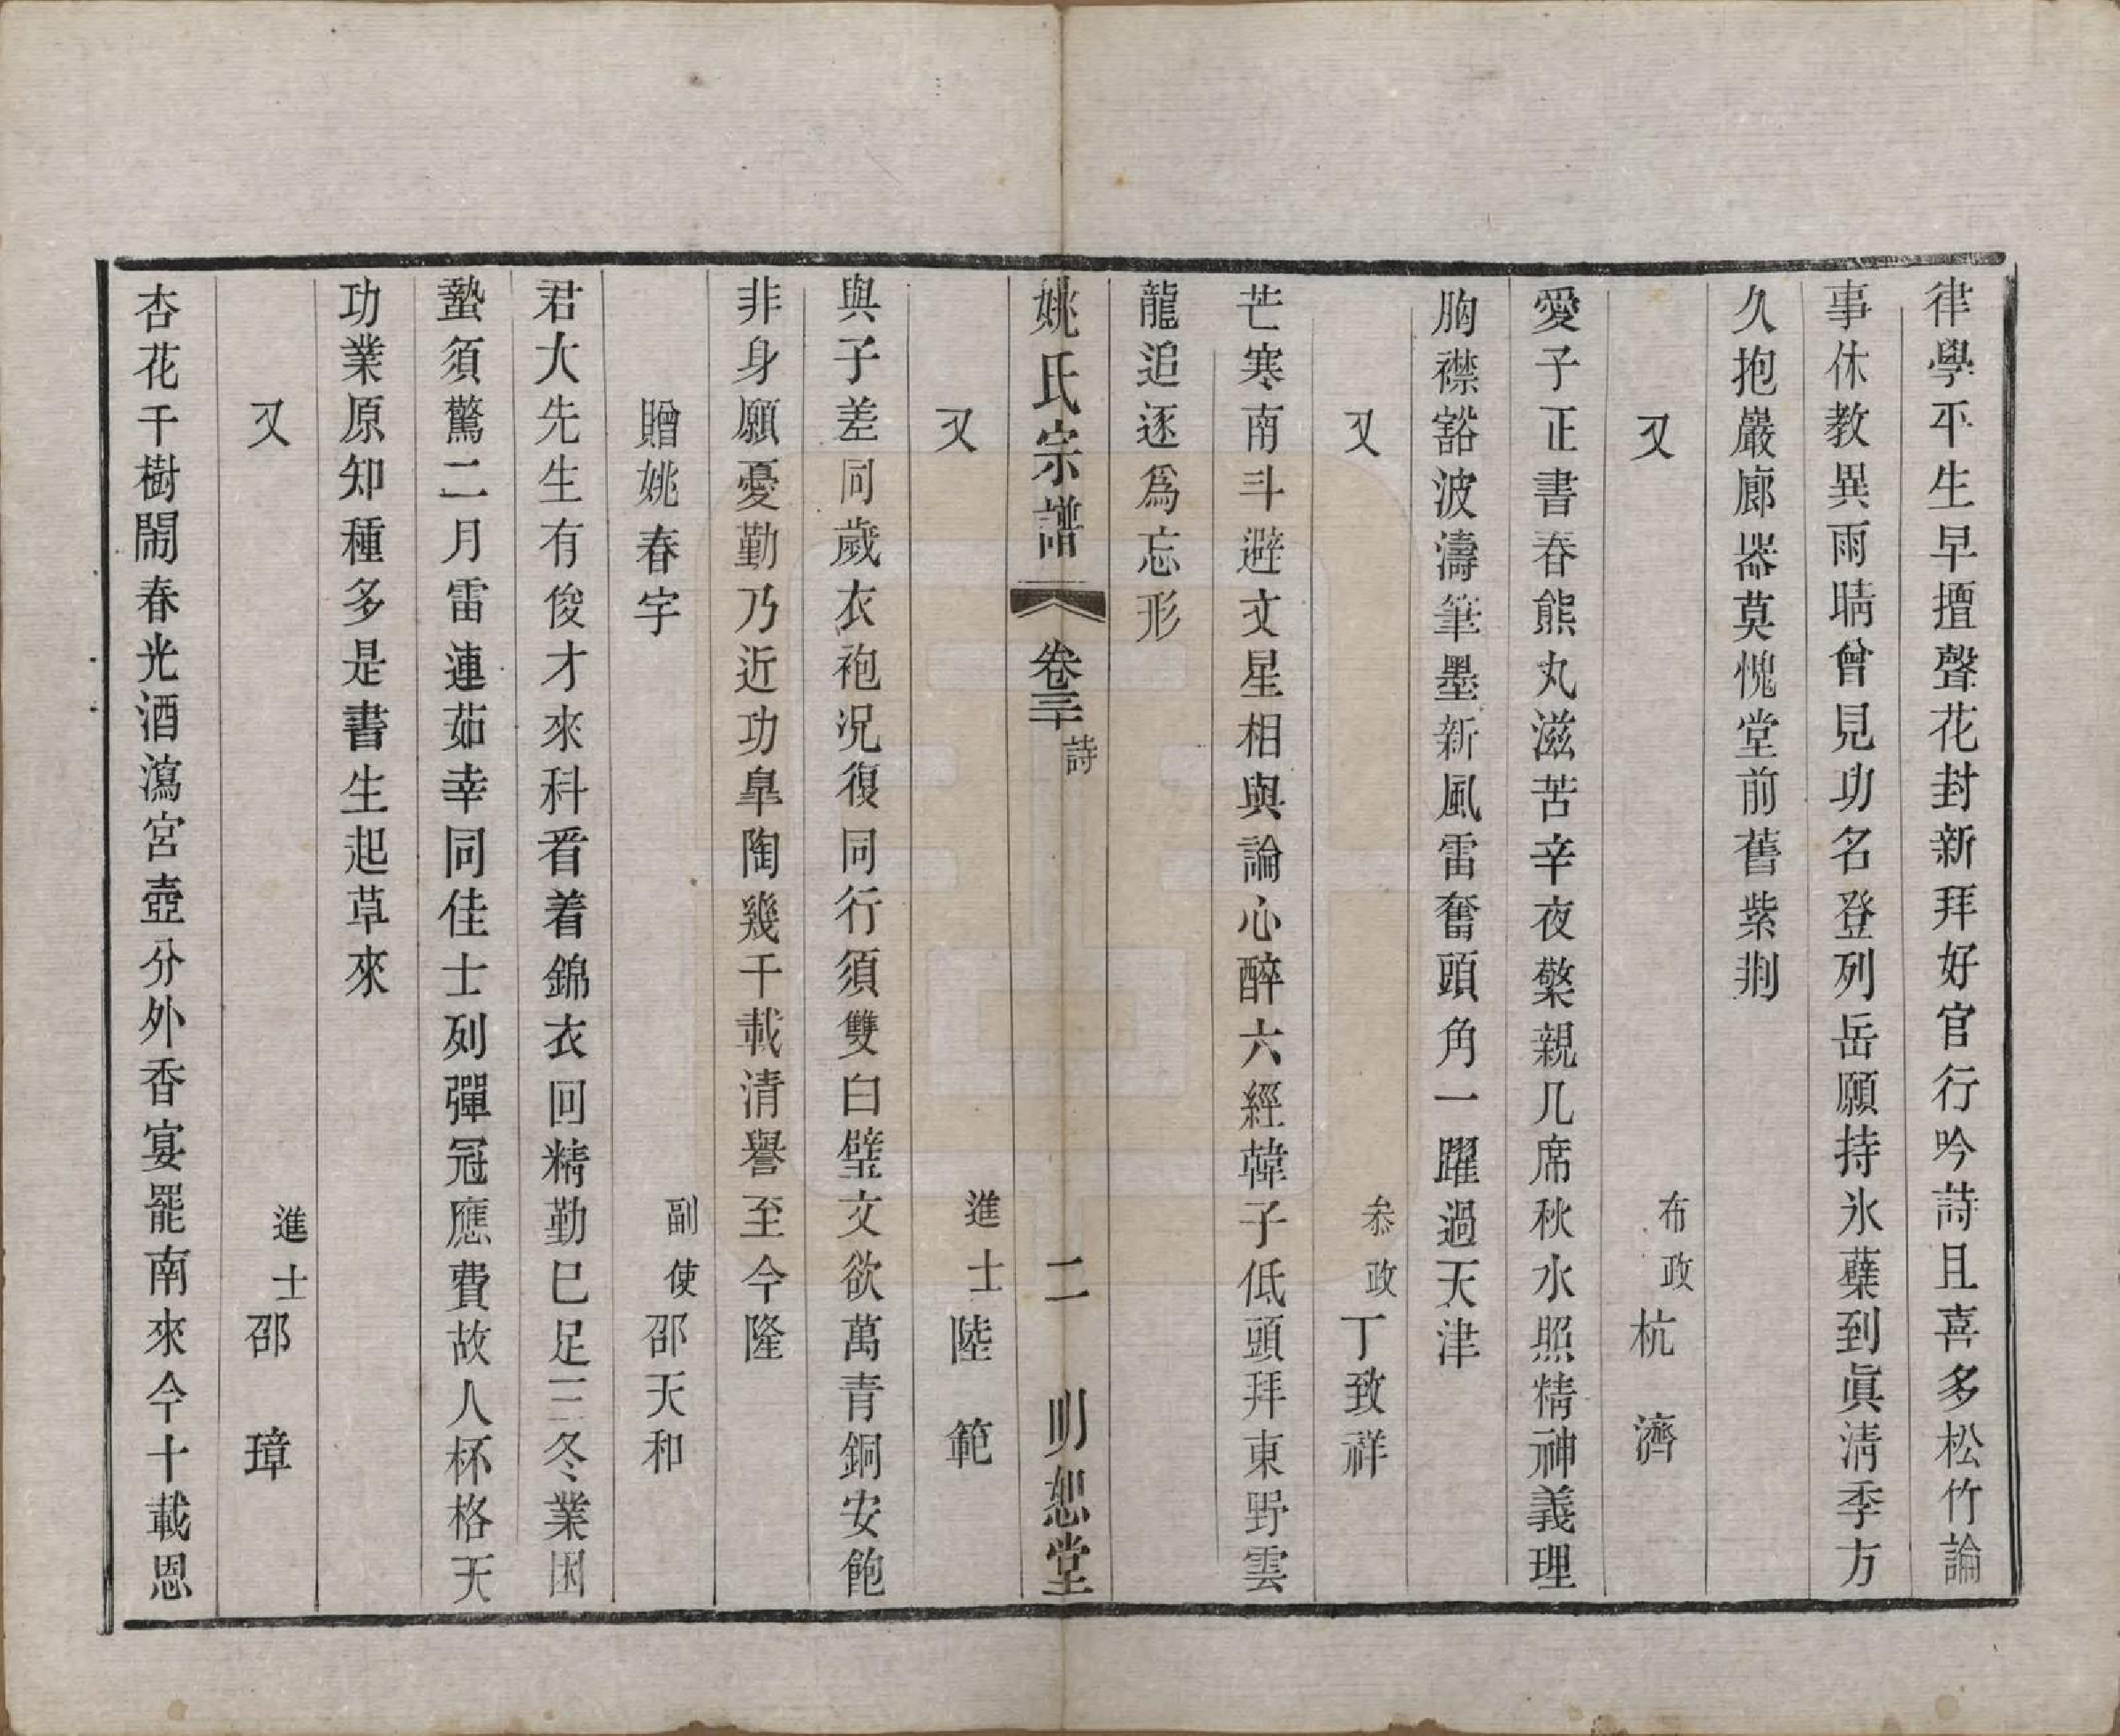 律學平生早擅聲花封新拜好官行吟詩且喜多松竹論
事休教異雨晴曾見功名登列岳願持氷蘗到眞清季方
久抱巖廊器莫愧堂前舊紫荆
又　布政杭　濟
愛子正書春熊丸滋苦辛夜檠親几席秋水照精神義理
胸襟豁波濤筆墨新風雷奮頭角一躍過天津
又　叅政丁致祥
芒寒南斗避文星相與論心醉六經韓子低頭拜東野雲
龍追逐爲忘形
姚氏宗譜　卷三十　詩　二　明恕堂
又　進士陸　範
與子差同歲衣袍况復同行須雙白璧文欲萬青銅安飽
非身願憂勤乃近功臯陶幾千載清譽至今隆
贈姚春宇　副使邵天和
君大先生有俊才來科看着錦衣回精勤巳足三冬業困
蟄須驚二月雷連茹幸同佳士列彈冠應費故人杯格天
功業原知種多是書生起草來
又　進士邵　璋
杏花千樹鬧春光酒瀉宮壺分外香宴罷南來今十載恩